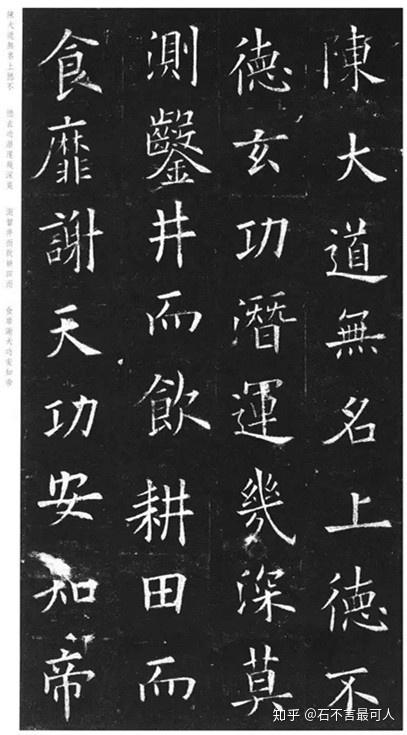 陳大道無名上德不
德玄功潛運幾深莫
測鑿井而飲耕田而
食靡謝天功安知帝
陳大道無名上德不 德玄功潛運幾深莫 測鑿井而飲耕田而 食靡謝天功安知帝
知乎 @石不言最可人